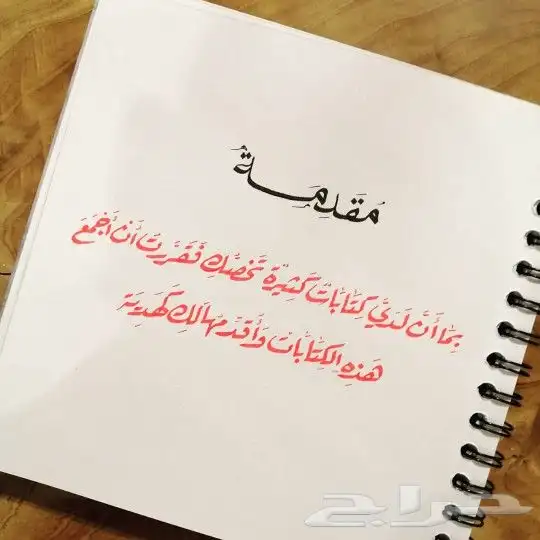 مُقَدِمَـلـةٌ
بِمَا أَنَّ لَدَيَّ كِتَابَاتٌ كَثِيرَة تَخصُّكِ فَقَرَّرتَ أَنْ أَجْمَعَ
هَذِهِ الكِتَابَات وَأُقَدِّمُهَا لَكِ كَهَدِيَة
حراج